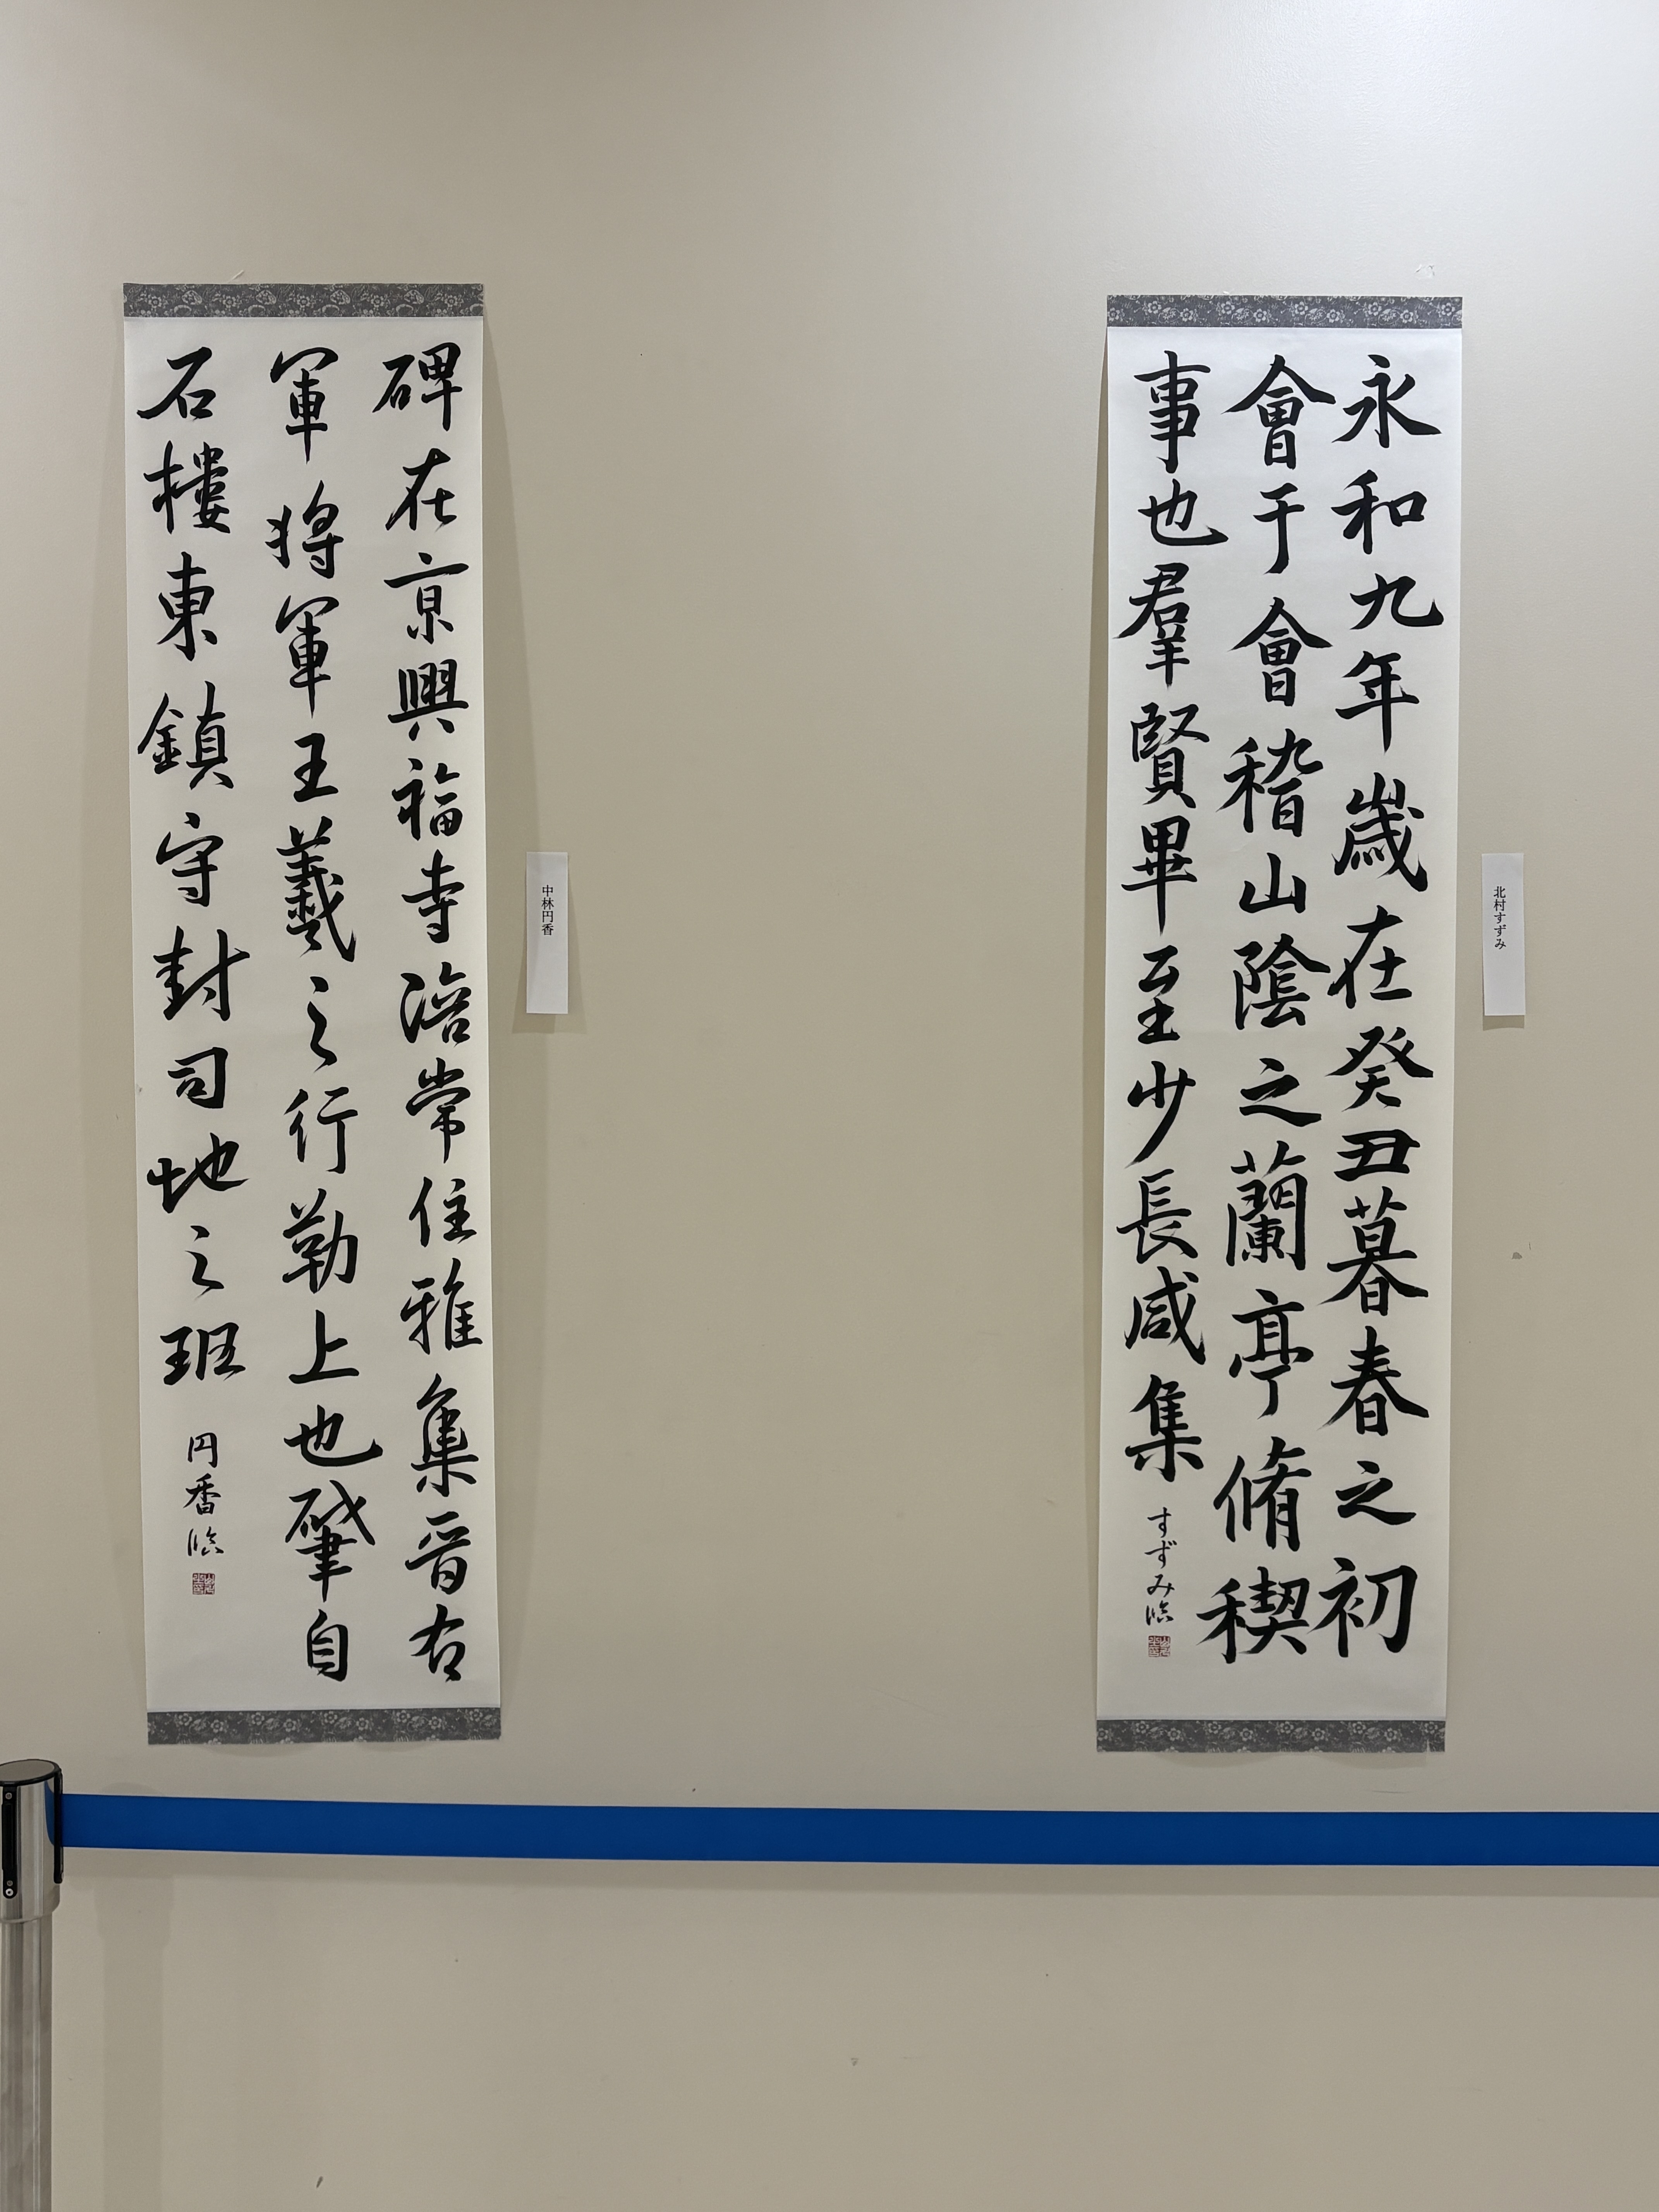 永和九年歳在癸丑暮春之初
會于會稽山陰之蘭亭脩稧
事也羣賢畢至少長咸集
すずみ臨
北村すずみ
碑在京興福寺涪常住雅集晋右
軍将軍王羲之行勒上也肇自
石樓東鎮守封司地之班
円香臨
中林円香